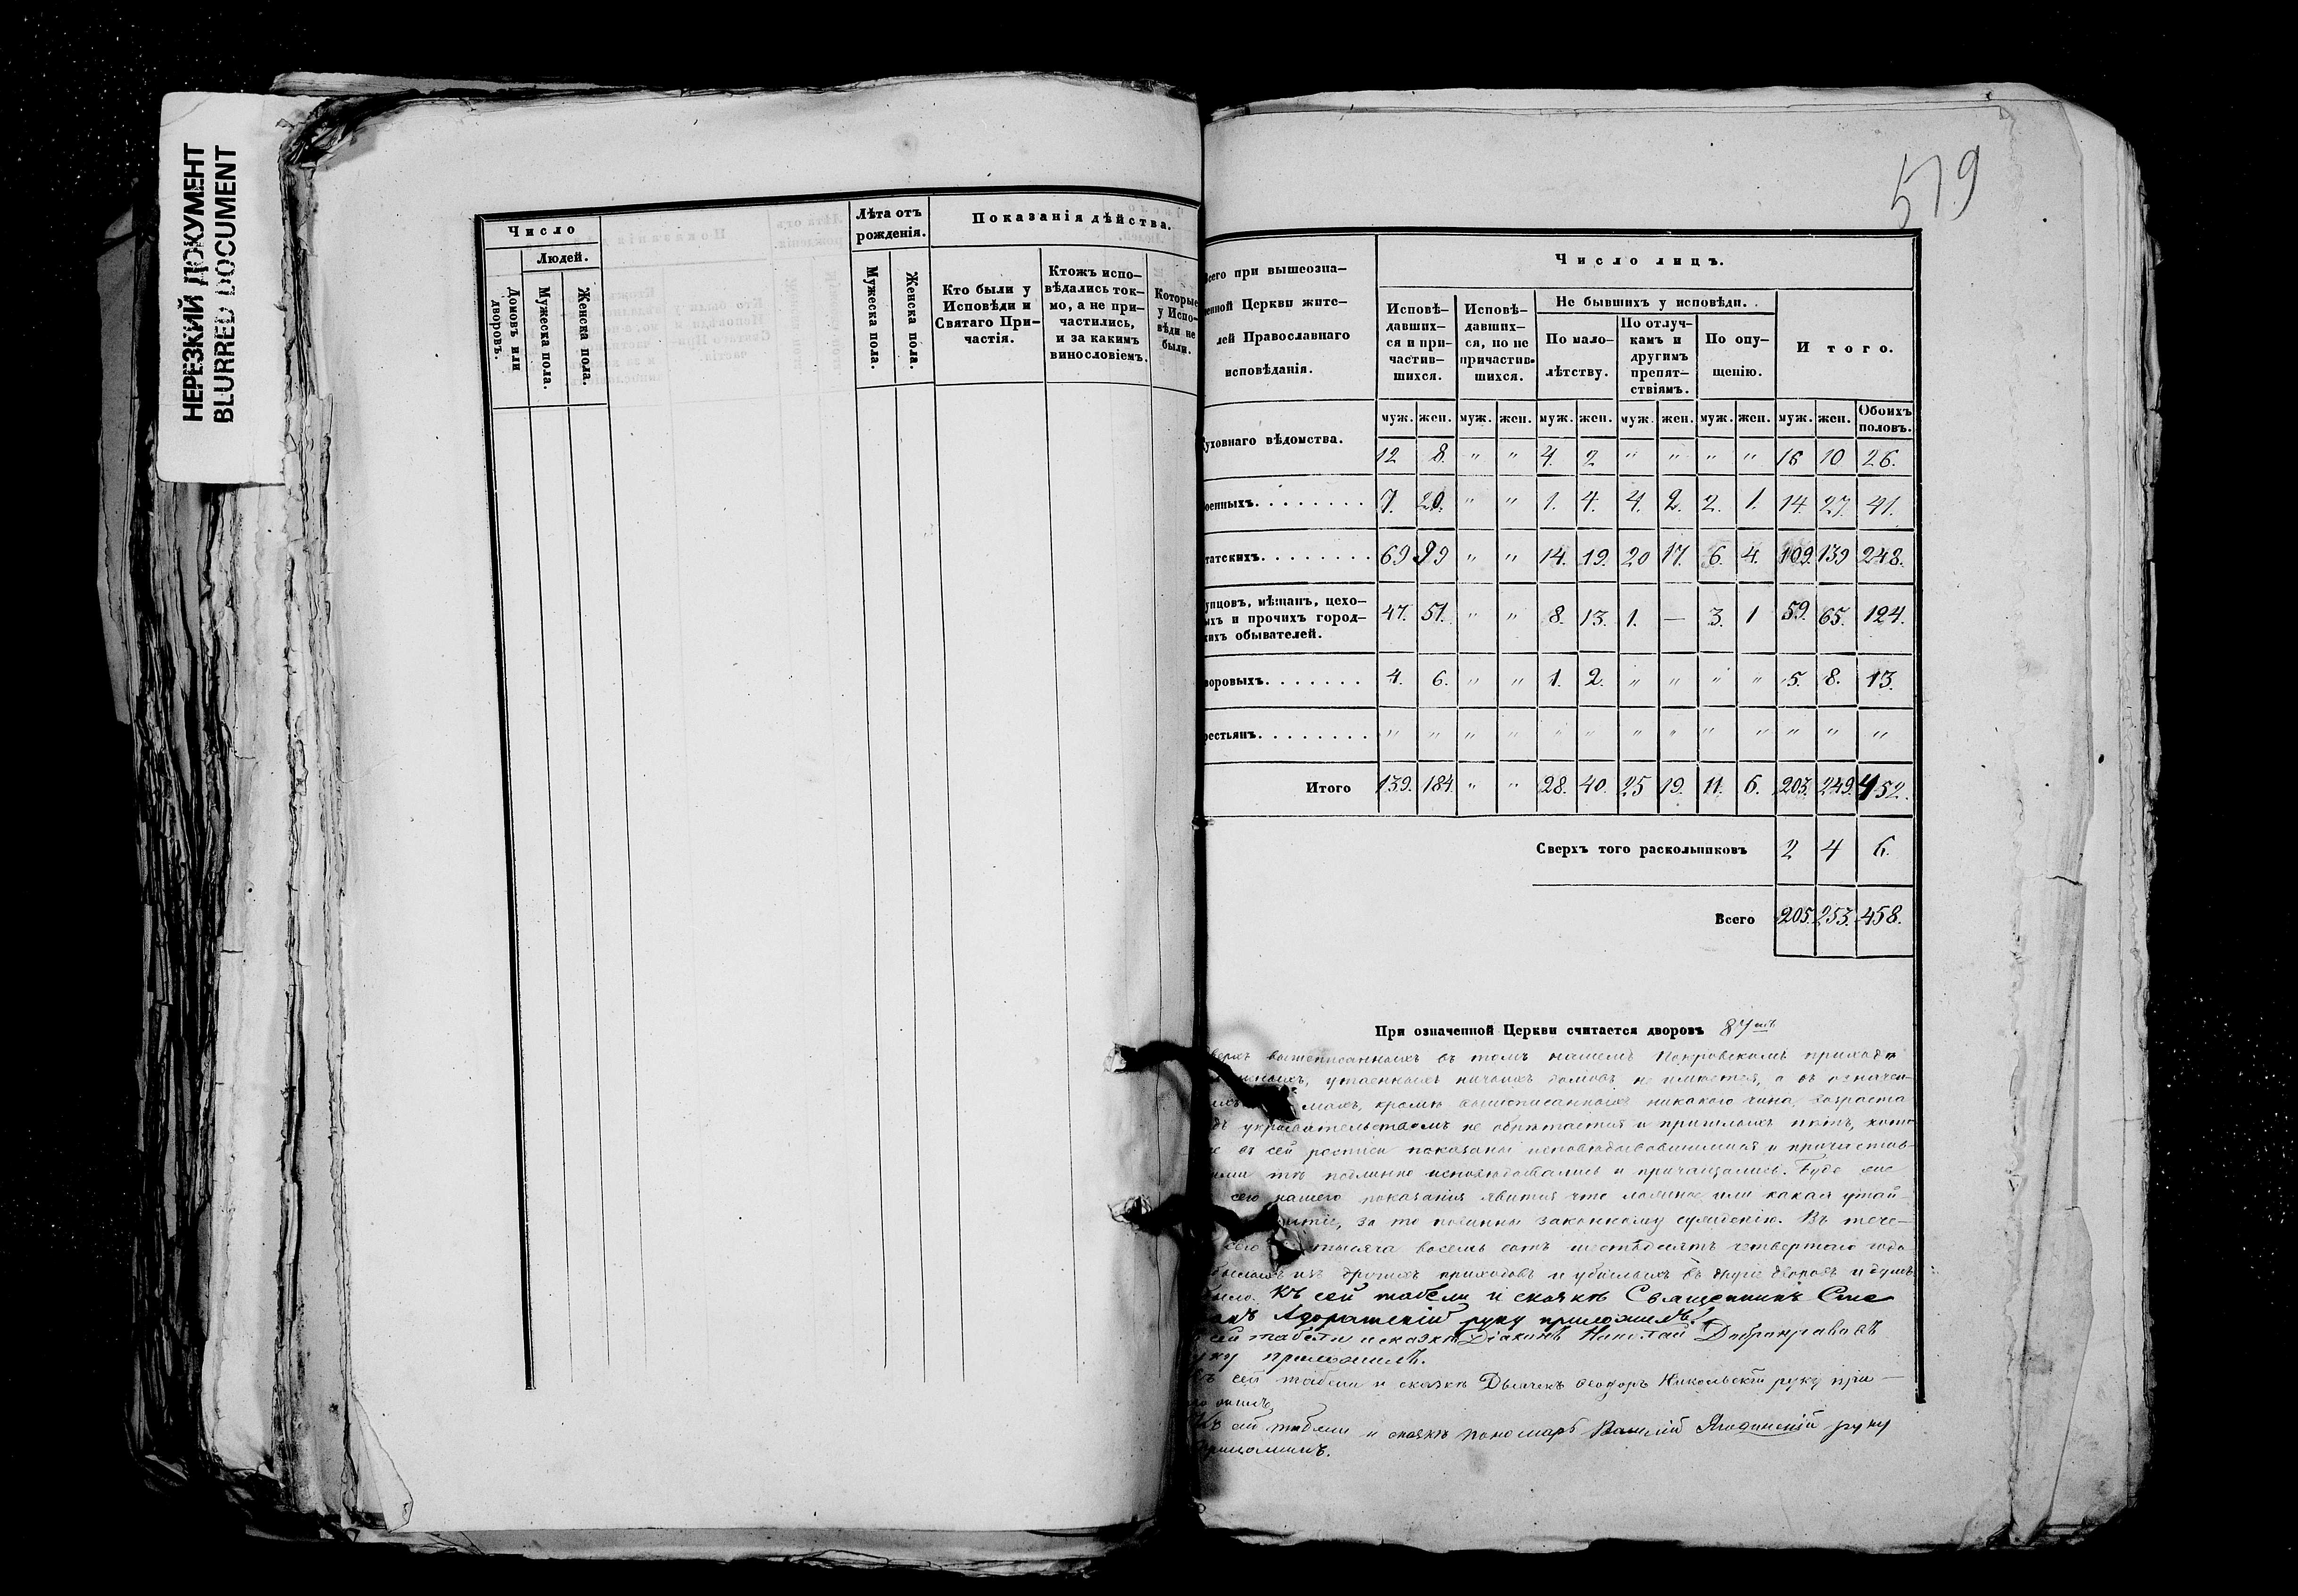 НЕРЕЗКИЙ ДОКУМЕНТ
BLURRED DOCUMENT
Число
Людей.
Домовъ или дворовъ.
Мужеска пола.
Женска пола.
Лѣта отъ рожденія.
Мужеска пола.
Женска пола.
Показанія дѣйства.
Кто были у
Исповѣди и
Святаго При-
частія.
Ктожъ испо-
вѣдались ток-
мо, а не при-
частились,
и за какимъ
винословіемъ.
Которые
у Испо-
вѣди не
были.
579
всего при вышеозна-
ченной Церкви жите-
лей Православнаго
исповѣданія.
Число лицъ.
Исповѣ-
давших-
ся и при-
частив-
шихся.
Исповѣ-
давших-
ся, но не
причастив-
шихся.
Не бывшихъ у исповѣди.
По мало-
лѣтству.
По отлуч-
камъ и
другимъ
препят-
ствіямъ.
По опу-
щенію.
Итого.
муж. жен. муж. жен. муж. жен. муж. жен. муж. жен. муж. жен. Обоихъ половъ.
уховнаго вѣдомства. 12 8. " " 4. 2 " " " " 16 10 26.
оенныхъ. 7. 20. " " 1. 4. 4. 2. 2. 1. 14. 27. 41.
татскихъ. 69 99 " " 14. 19. 20 17. 6. 4. 109. 139 248.
упцовъ, мѣщанъ, цехо-
ыхъ и прочихъ город-
кихъ обывателей. 47. 51. " " 8. 13. 1. — 3. 1 59. 65. 124.
воровыхъ. 4. 6. " " 1. 2. " " " " 5. 8. 13.
рестьянъ. " " " " " " " " " " " " "
Итого 139. 184. " " 28. 40. 25 19. 11. 6. 203. 249. 452.
Сверхъ того раскольниковъ 2 4 6.
Всего 205. 253. 458.
При означенной Церкви считается дворовъ 87
вышеписанныхъ въ томъ нашемъ Покровскомъ приходѣ
утаенныхъ ничьихъ домовъ не имѣется, а въ означен-
кромѣ вышеписанныхъ никакого чина, возраста
укрывательствомъ не обрѣтается и пришлыхъ нѣтъ, кото
въ сей росписи показаны исповѣдывавшимися и причастив-
тѣ подлинно исповѣдовались и причащались. Буде же
сего нашего показанія явится что ложное или какая утай-
за то повинны законному сужденію. Въ тече-
сего тысяча восемь сотъ шестьдесятъ четвертаго года
изъ другихъ приходовъ и убылыхъ въ другіе дворовъ и душъ
было. Къ сей табели и сказкѣ Священникъ Сте
руку приложилъ.
сей табели и сказкѣ Діаконъ Николай Добронравовъ
руку приложилъ.
Къ сей табели и сказкѣ Дьячекъ Ѳеодоръ Никольскій руку при-
ложилъ.
Къ сей табели и сказкѣ пономарь Василій Ягодинскій руку
приложилъ.